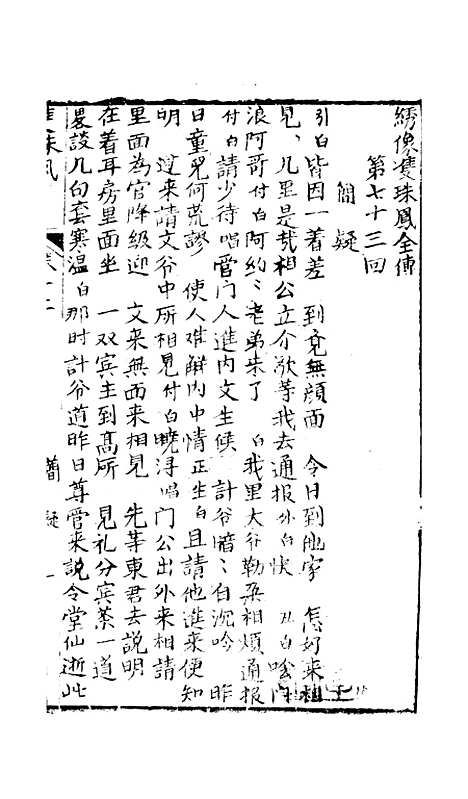 綉像雙珠鳳全傳
第七十三回
簡疑
引白皆因一着差　到底無顔面　今日到他家　怎好來相
見儿里是哉相公立介歇等我去通报外白快丑白唅门
浪阿哥付白阿约〻老弟来了白我里大爷勒朶相煩通报
付白請少待唱管门人進内文生候　計爷暗〻白沉吟　昨
日童兒何荒謬　使人难觧内中情正生白且請他進来便知
明　道来請文爷中所相見付白曉浔唱門公出外来相請
里面為官降級迎　文来無面来相見　先等東君去説明
在着耳房里面坐　一双賓主到髙所　見礼分賓茶一道
畧談几句套寒温白那时計爷道昨日尊管来説令堂仙逝此
珠鳳
簡疑
一